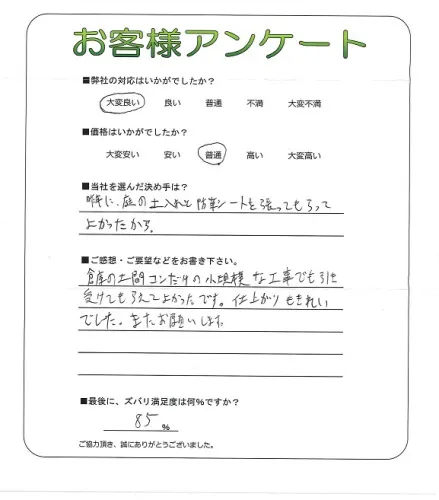 お客様アンケート
■弊社の対応はいかがでしたか？
大変良い 良い 普通 不満 大変不満
■価格はいかがでしたか？
大変安い 安い 普通 高い 大変高い
■当社を選んだ決め手は？
昨年に、庭の土入れと防草シートを張ってもらって
よかったから。
■ご感想・ご要望などをお書き下さい。
倉庫の土間コンだけの小規模な工事でも引き
受けてもらえてよかったです。仕上がりもきれい
でした。またお願いします。
■最後に、ズバリ満足度は何％ですか？
85％
ご協力頂き、誠にありがとうございました。